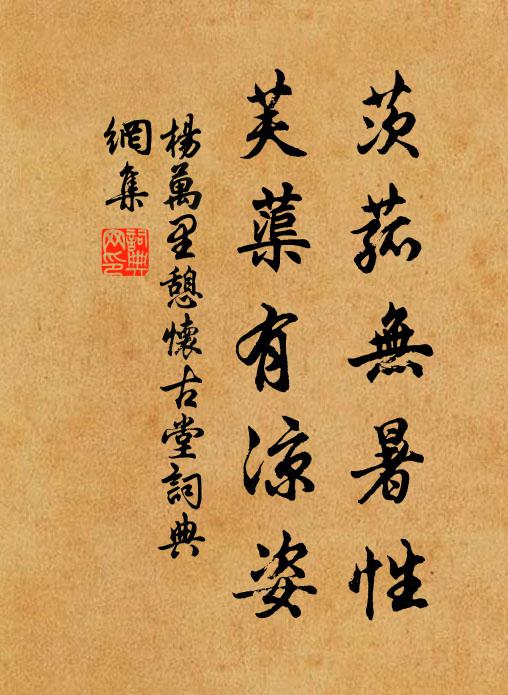 茨菰無暑性
芙蕖有涼姿
楊萬里憩懷古堂詞典
網集
詞典
网印